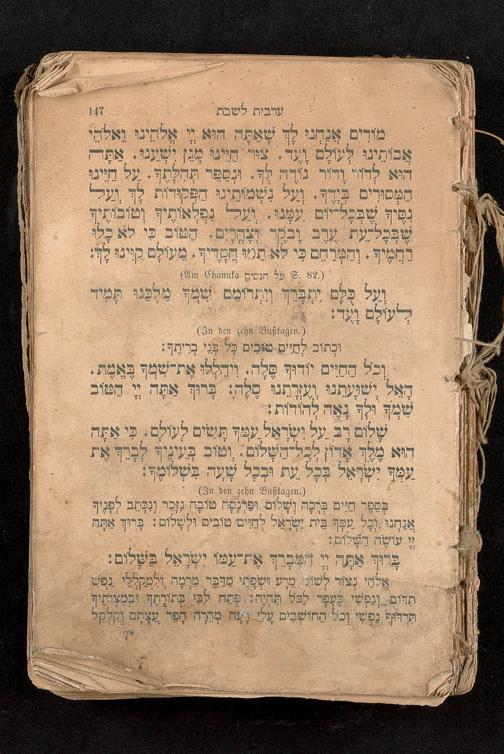 147 ערבית לשבת
מוֹדִים אֲנַחְנוּ לָךְ שֶׁאַתָּה הוּא יְיָ אֱלֹהֵינוּ וֵאלֹהֵי
אֲבוֹתֵינוּ לְעוֹלָם וָעֶד. צוּר חַיֵּינוּ מָגֵן יִשְׁעֵנוּ. אַתָּה
הוּא לְדוֹר וָדוֹר נוֹדֶה לְּךָ. וּנְסַפֵּר תְּהִלָּתֶךָ. עַל חַיֵּינוּ
הַמְּסוּרִים בְּיָדֶךָ. וְעַל נִשְׁמוֹתֵינוּ הַפְּקוּדוֹת לָךְ וְעַל
נִסֶּיךָ שֶׁבְּכָל־יוֹם עִמָּנוּ. וְעַל נִפְלְאוֹתֶיךָ וְטוֹבוֹתֶיךָ
שֶׁבְּכָל־עֵת עֶרֶב וָבֹקֶר וְצָהֳרָיִם. הַטּוֹב כִּי לֹא כָלוּ
רַחֲמֶיךָ. וְהַמְרַחֵם כִּי לֹא תַמּוּ חֲסָדֶיךָ. מֵעוֹלָם קִוִּינוּ לָךְ:
(Am Chanuka על הנסים S. 82.)
וְעַל כֻּלָּם יִתְבָּרַךְ וְיִתְרוֹמַם שִׁמְךָ מַלְכֵּנוּ תָּמִיד
לְעוֹלָם וָעֶד:
(In den zehn Bußtagen.)
וּכְתוֹב לְחַיִּים טוֹבִים כָּל בְּנֵי בְרִיתֶךָ:
וְכֹל הַחַיִּים יוֹדוּךָ סֶּלָה. וִיהַלְלוּ אֶת־שִׁמְךָ בֶּאֱמֶת.
הָאֵל יְשׁוּעָתֵנוּ וְעֶזְרָתֵנוּ סֶלָה: בָּרוּךְ אַתָּה יְיָ הַטּוֹב
שִׁמְךָ וּלְךָ נָאֶה לְהוֹדוֹת:
שָׁלוֹם רָב עַל יִשְׂרָאֵל עַמְּךָ תָּשִׂים לְעוֹלָם. כִּי אַתָּה
הוּא מֶלֶךְ אָדוֹן לְכָל־הַשָּׁלוֹם. וְטוֹב בְּעֵינֶיךָ לְבָרֵךְ אֶת
עַמְּךָ יִשְׂרָאֵל בְּכָל עֵת וּבְכָל שָׁעָה בִּשְׁלוֹמֶךָ:
(In den zehn Bußtagen.)
בְּסֵפֶר חַיִּים בְּרָכָה וְשָׁלוֹם וּפַרְנָסָה טוֹבָה נִזָּכֵר וְנִכָּתֵב לְפָנֶיךָ
אֲנַחְנוּ וְכָל עַמְּךָ בֵּית יִשְׂרָאֵל לְחַיִּים טוֹבִים וּלְשָׁלוֹם: בָּרוּךְ אַתָּה
יְיָ עוֹשֵׂה הַשָּׁלוֹם:
בָּרוּךְ אַתָּה יְיָ הַמְבָרֵךְ אֶת־עַמּוֹ יִשְׂרָאֵל בַּשָּׁלוֹם:
אֱלֹהַי נְצוֹר לְשׁוֹנִי מֵרָע וּשְׂפָתַי מִדַּבֵּר מִרְמָה וְלִמְקַלְלַי נַפְשִׁי
תִדּוֹם וְנַפְשִׁי כֶּעָפָר לַכֹּל תִּהְיֶה: פְּתַח לִבִּי בְּתוֹרָתֶךָ וּבְמִצְוֹתֶיךָ
תִּרְדּוֹף נַפְשִׁי וְכֹל הַחוֹשְׁבִים עָלַי רָעָה מְהֵרָה הָפֵר עֲצָתָם וְקַלְקֵל
7*